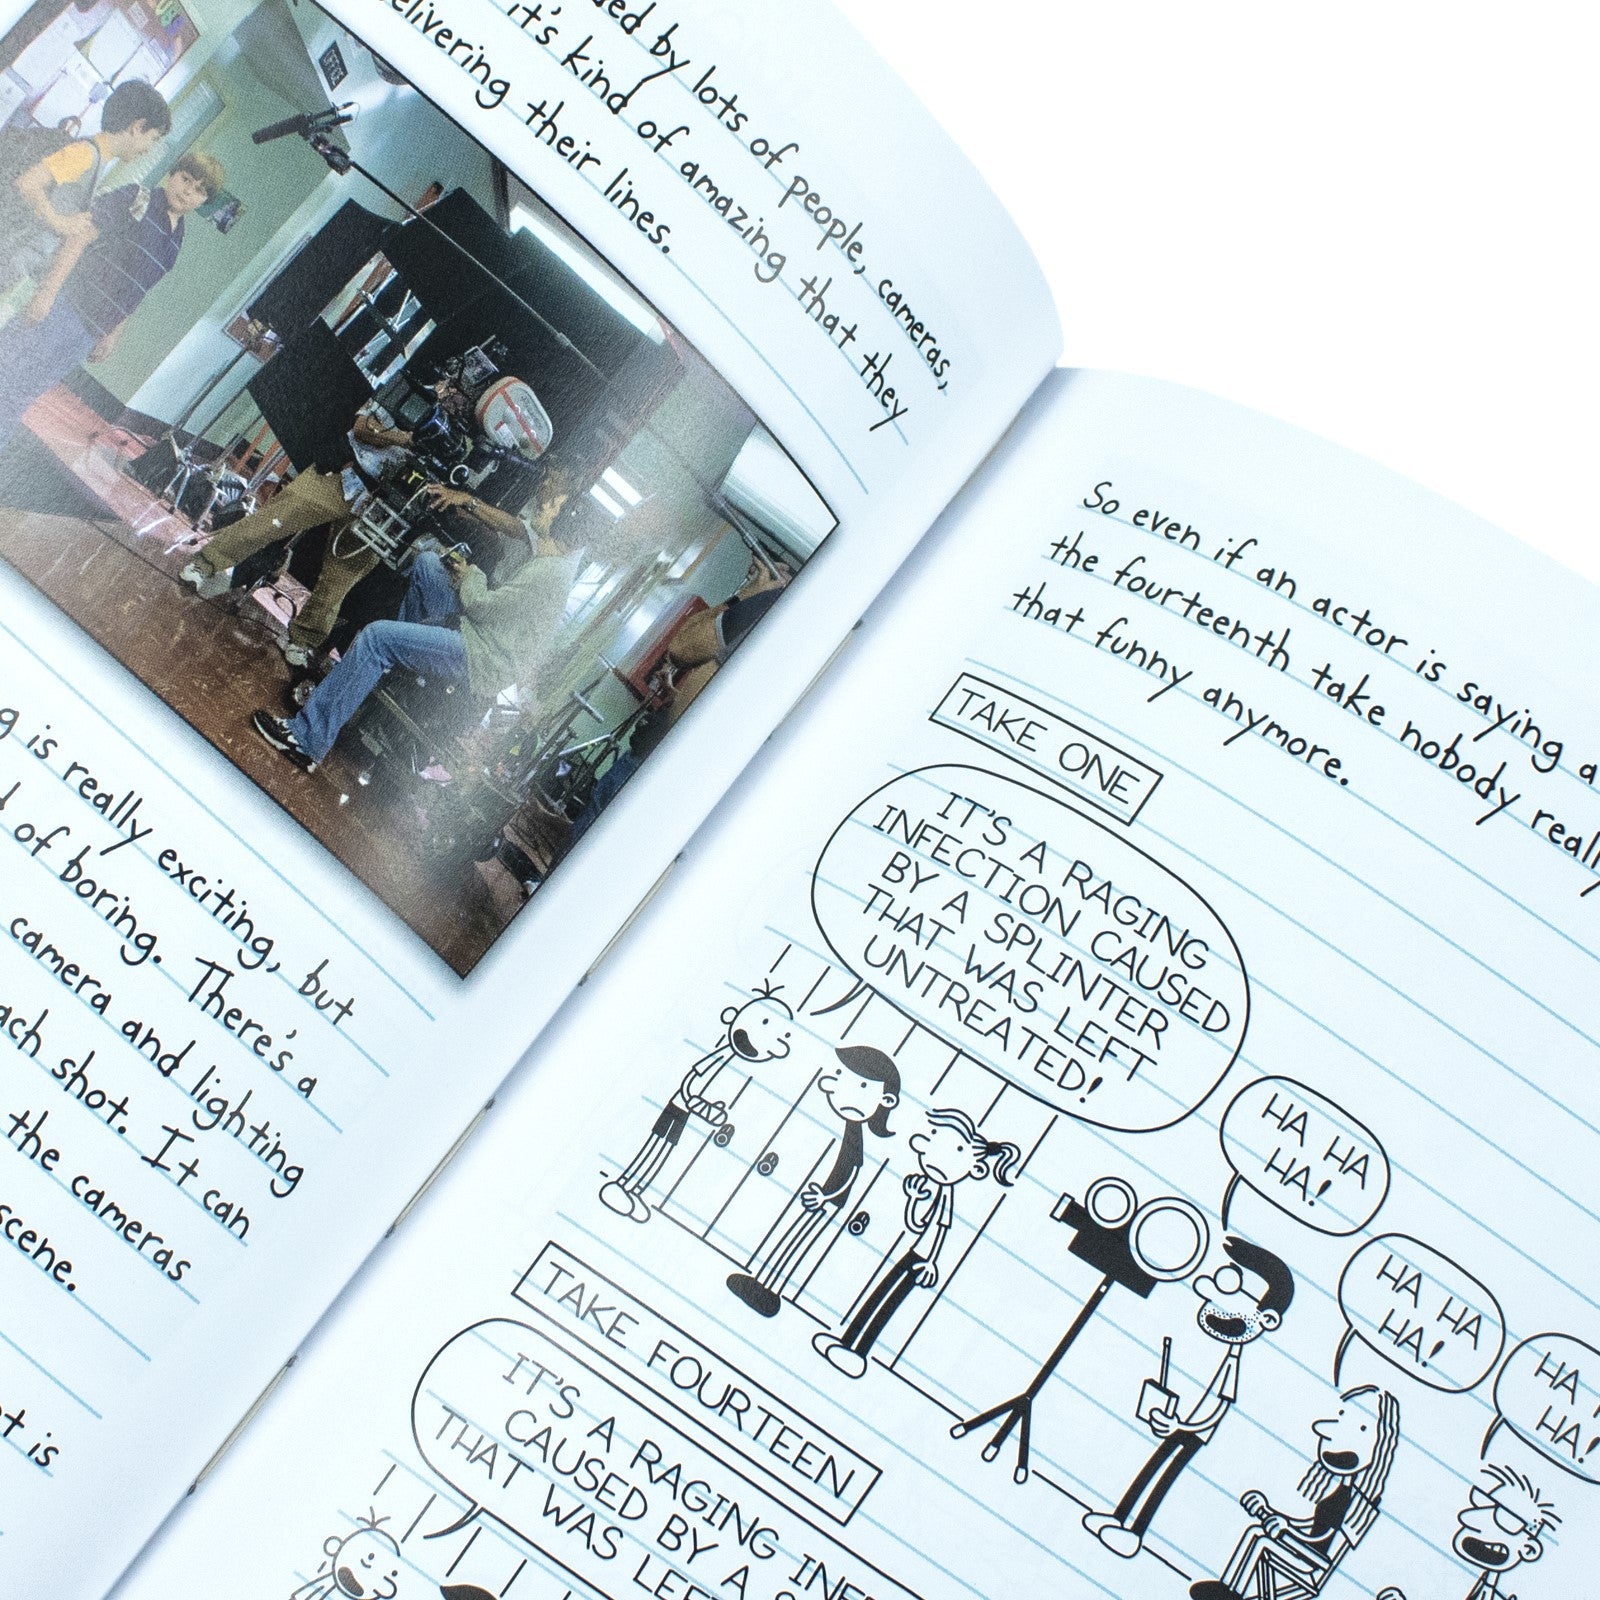 ded by lots of people, cameras,
it's kind of amazing that they
delivering their lines.
OFFICE
is really exciting, but
of boring. There's a
camera and lighting
each shot. It can
the cameras
scene.
is
So even if an actor is saying a
the fourteenth take nobody really
that funny anymore.
TAKE ONE
IT'S A RAGING
INFECTION CAUSED
BY A SPLINTER
THAT WAS LEFT
UNTREATED!
HA HA
HA!
HA HA
HA!
HA
HA!
TAKE FOURTEEN
IT'S A RAGING INFE
CAUSED BY A S
THAT WAS LEF